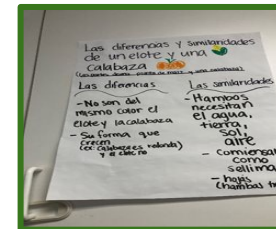 Las diferencias y similaridades
de un elote y una
calabaza
(Las partes de una planta de maíz y una calabaza)
Las diferencias
- No son del
mismo color el
elote y la calabaza
- Su forma que
crecen
(ex: calabaza es redonda)
y el elote no
Las similaridades
- Hambos
necesitan
el agua,
tierra,
sol,
aire
- comiensan
como
sellima
- hojas
(hambas